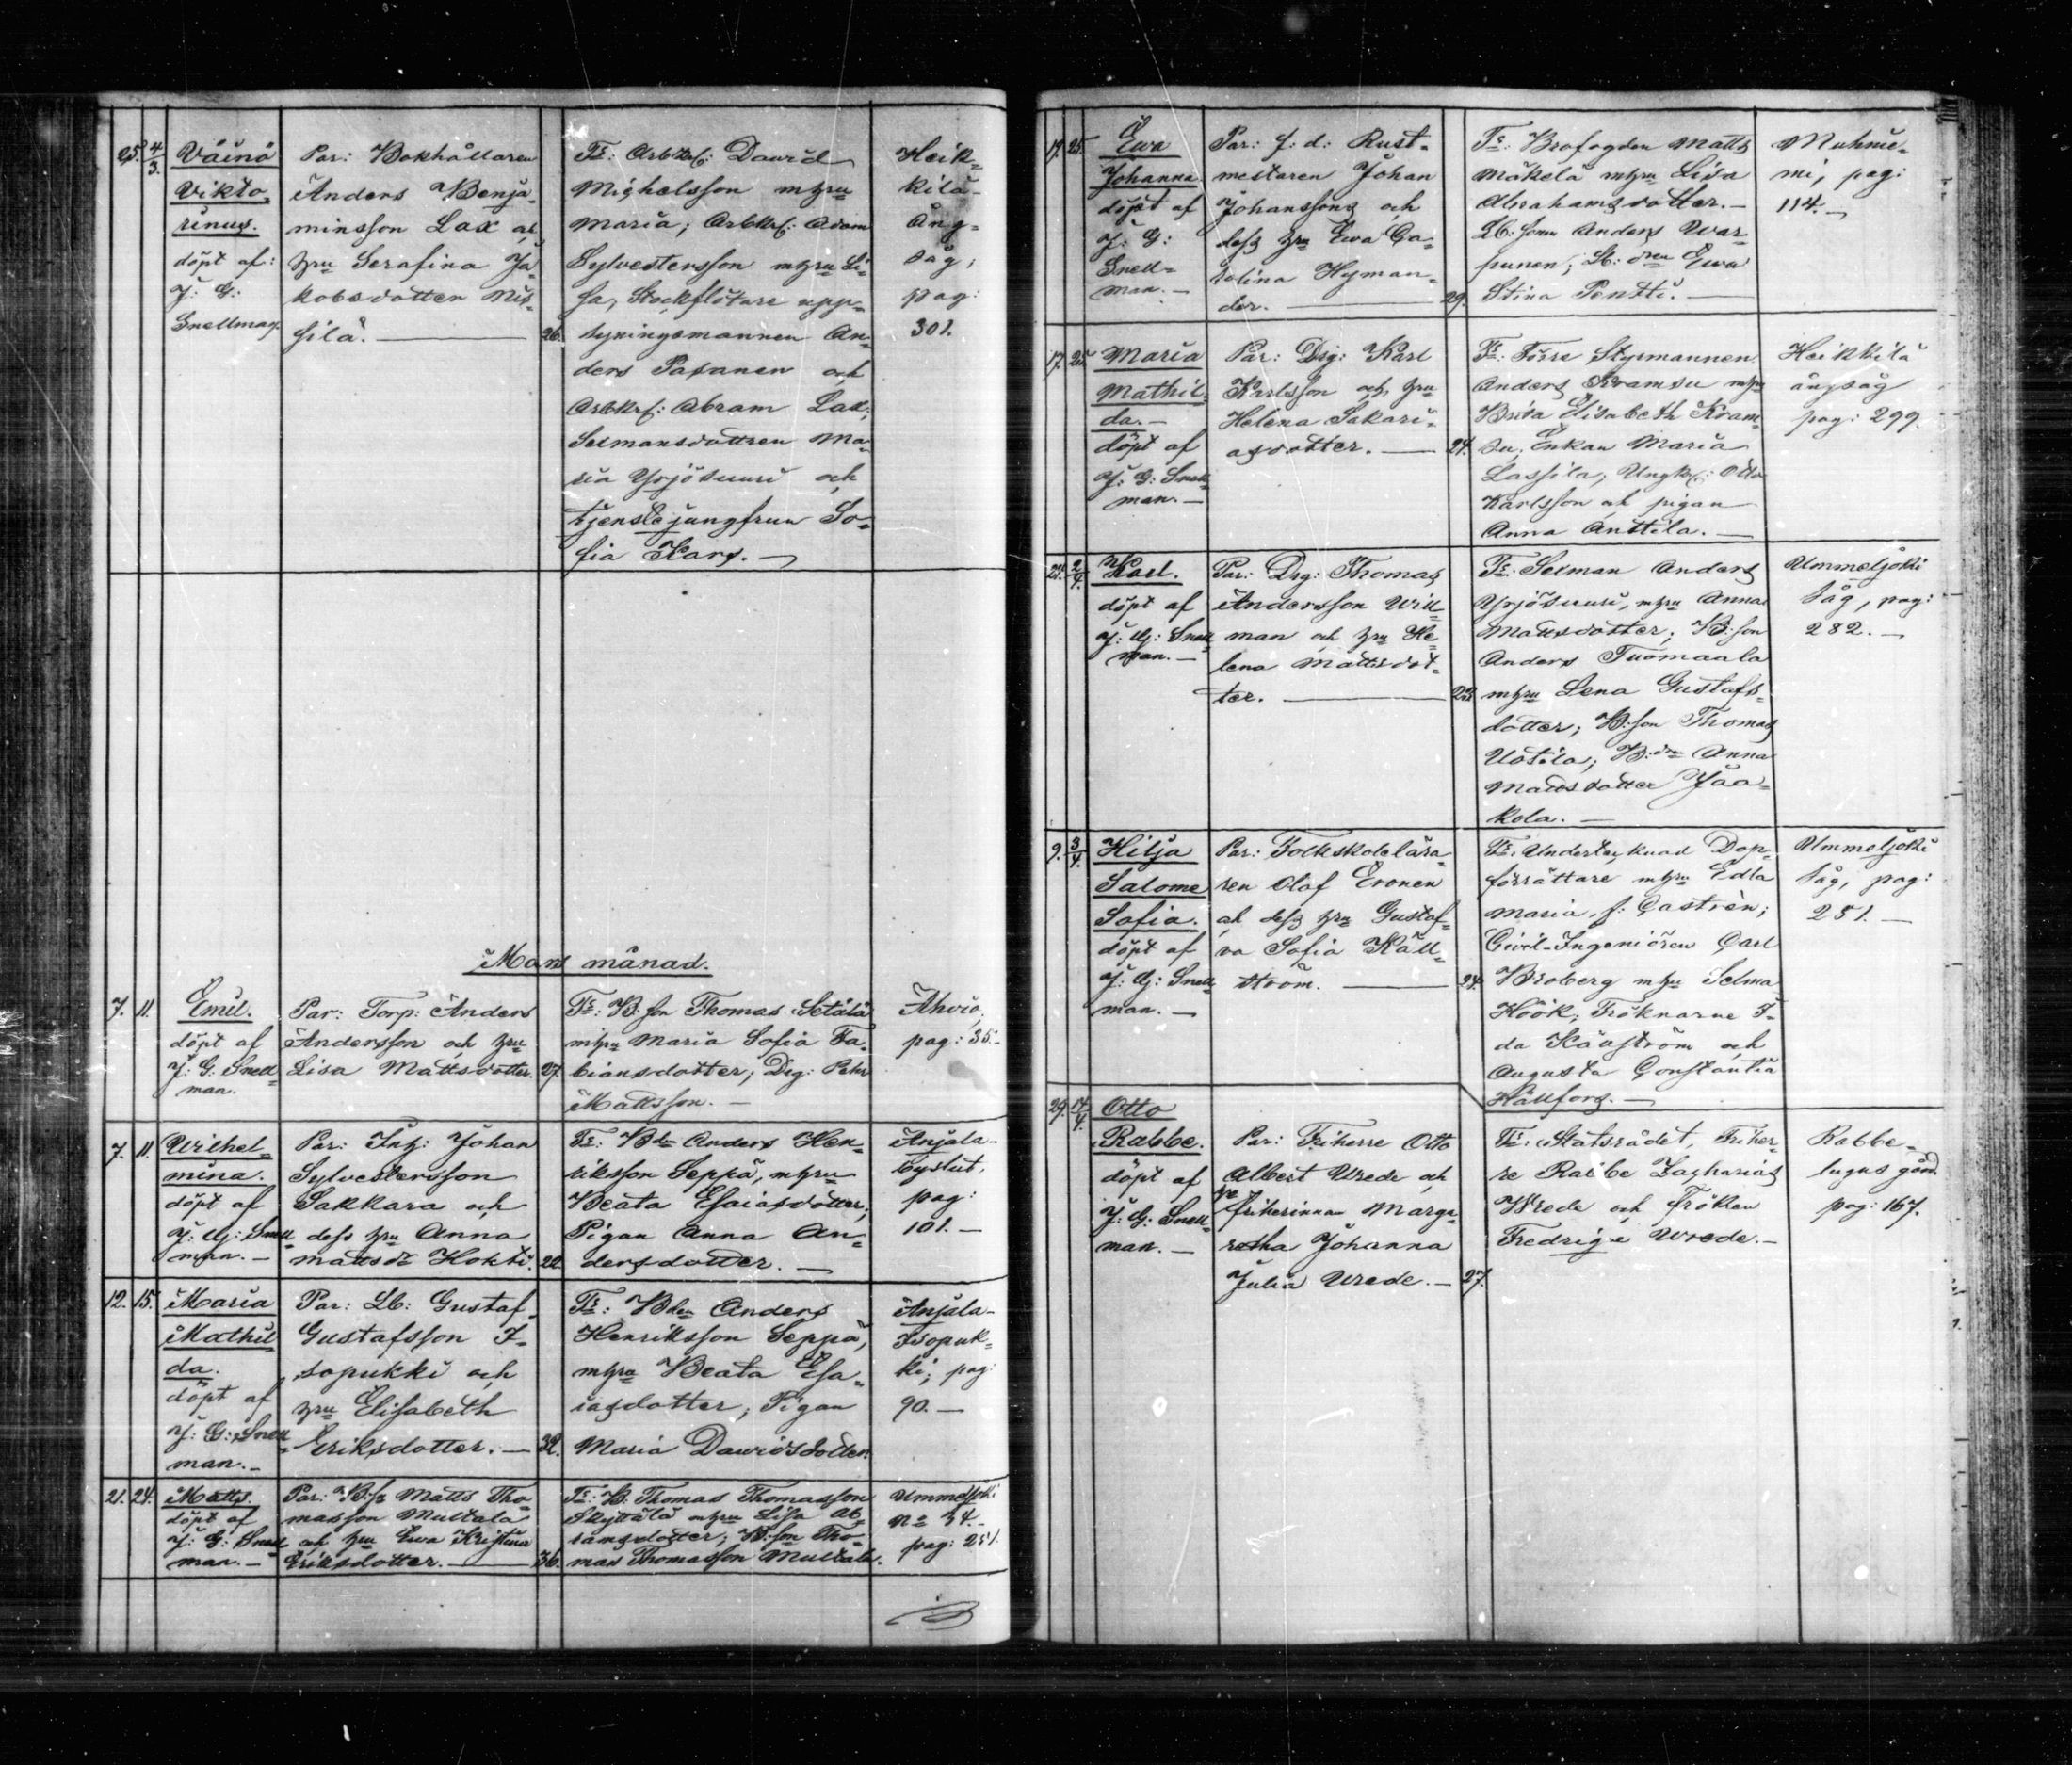 25. 4/3. Väinö
Vikto-
rinus.
döpt af:
J: G:
Snellman.
Par: Bokhållaren
Anders Benja-
minsson Lax och
hru Serafina Ja-
kobsdotter Nis-
silä. 26.
Fr: Arbtkf: Dawid
Mighelsson mhru
Maria; Arbtkf: Adam
Sylvestersson mhru Li-
sa, Stockflötare upp-
syningsmannen An-
ders Pasanen och
Arbtkf: Abram Lax;
Sexmansdottren Ma-
ria Yrjösuuri och
tjenstejungfrun So-
fia Kars.
Heik-
kilä
Ång-
såg,
pag:
301.
Mars månad.
7. 11. Emil.
döpt af
J: G. Snell-
man.
Par: Torp: Anders
Andersson och hru
Lisa Mattsdotter. 27.
Fr: B:son Thomas Setälä
mhru Maria Sofia Fa-
biansdotter; Drg: Pehr
Mattsson.
Ahvio,
pag: 35.
7. 11. Wilhel-
mina.
döpt af
J: G: Snell-
man.
Par: Inh: Johan
Sylvestersson
Sakkara och
dess hru Anna
Mattsdr Hokki. 22.
Fr: Bdn Anders Hen-
riksson Seppä, mhru
Beata Esaiasdotter;
Pigan Anna An-
dersdotter.
Anjala-
byslut,
pag:
101.
12. 15. Maria
Mathil-
da.
döpt af
J: G: Snell-
man.
Par: Lb: Gustaf
Gustafsson I-
sopukki och
hru Elisabeth
Eriksdotter. 32.
Fr: Bden Anders
Henriksson Seppä,
mhru Beata Esa-
iasdotter, Pigan
Maria Dawidsdotter.
Anjala-
Isopuk-
ki, pag:
90.
21. 24. Matts.
döpt af
J: G: Snell-
man.
Par: B:sn Matts Tho-
masson Multala
och hru Ewa Kristina
Eriksdotter. 36.
Fr: B: Thomas Thomasson
Skyttälä mhru Lisa Ab-
ramsdotter; B:son Tho-
mas Thomasson Multala.
Ummeljoki
No 34.
pag: 251.
17. 25. Ewa
Johanna
döpt af
J: G:
Snell-
man.
Par: f: d: Rust-
mestaren Johan
Johansson och
dess hru Ewa Ca-
rolina Hyman-
der. 29.
Fr: Brofogden Matts
Mäkelä mhru Lisa
Abrahamsdotter.
Lb: sonen Anders War-
punen, Lb: dren Ewa
Stina Pentti.
Muhnie-
mi, pag:
114.
17. 25. Maria
Mathil-
da.
döpt af
J: G: Snell-
man.
Par: Drg: Karl
Karlsson och hru
Helena Sakari-
asdotter. 24.
Fr: Förre Styrmannen
Anders Kramsu mhru
Brita Elisabeth Kram-
su, Enkan Maria
Lassila, Ungkf: Otto
Karlsson och pigan
Anna Anttila.
Heikkilä
ångsåg
pag: 299.
2/4 Karl.
döpt af
J: G: Snell-
man.
Par: Drg: Thomas
Andersson Will-
man och hru He-
lena Mattsdot-
ter. 22.
Fr: Sexman Anders
Yrjösuuri, mhru Anna
Mattsdotter; B:son
Anders Tuomaala
mhru Lena Gustafs-
dotter; B:son Thomas
Uotila; B:drn Anna
Mattsdotter Jaa-
kola.
Ummeljoki
såg, pag:
282.
9. 3/4. Hilja
Salome
Sofia.
döpt af
J: G: Snell-
man.
Par: Folkskolelära-
ren Olof Eronen
och dess hru Gustaf-
va Sofia Käll-
ström. 24.
Fr: Undertecknad Dop-
förrättare mhru Edla
Maria, f. Castrén;
Civil-Ingeniören Carl
Broberg mhru Selma
Höök; Fröknarne I-
da Källström och
Augusta Constantia
Hällfors.
Ummeljoki
såg, pag:
251.
29. 14/4. Otto
Rabbe.
döpt af
J: G: Snell-
man.
Par: Friherre Otto
Albert Wrede och
friherinnan Marga-
retha Johanna
Julia Wrede. 27.
Fr: Statsrådet, Friher-
re Rabbe Zacharias
Wrede och Fröken
Fredrige Wrede.
Rabbe-
lugns gård
pag: 167.